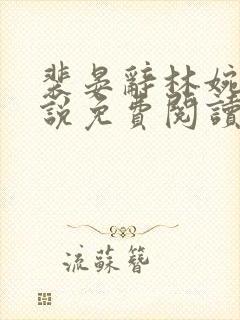 裴晏辭林婉
說免費閱讀
流蘇簪